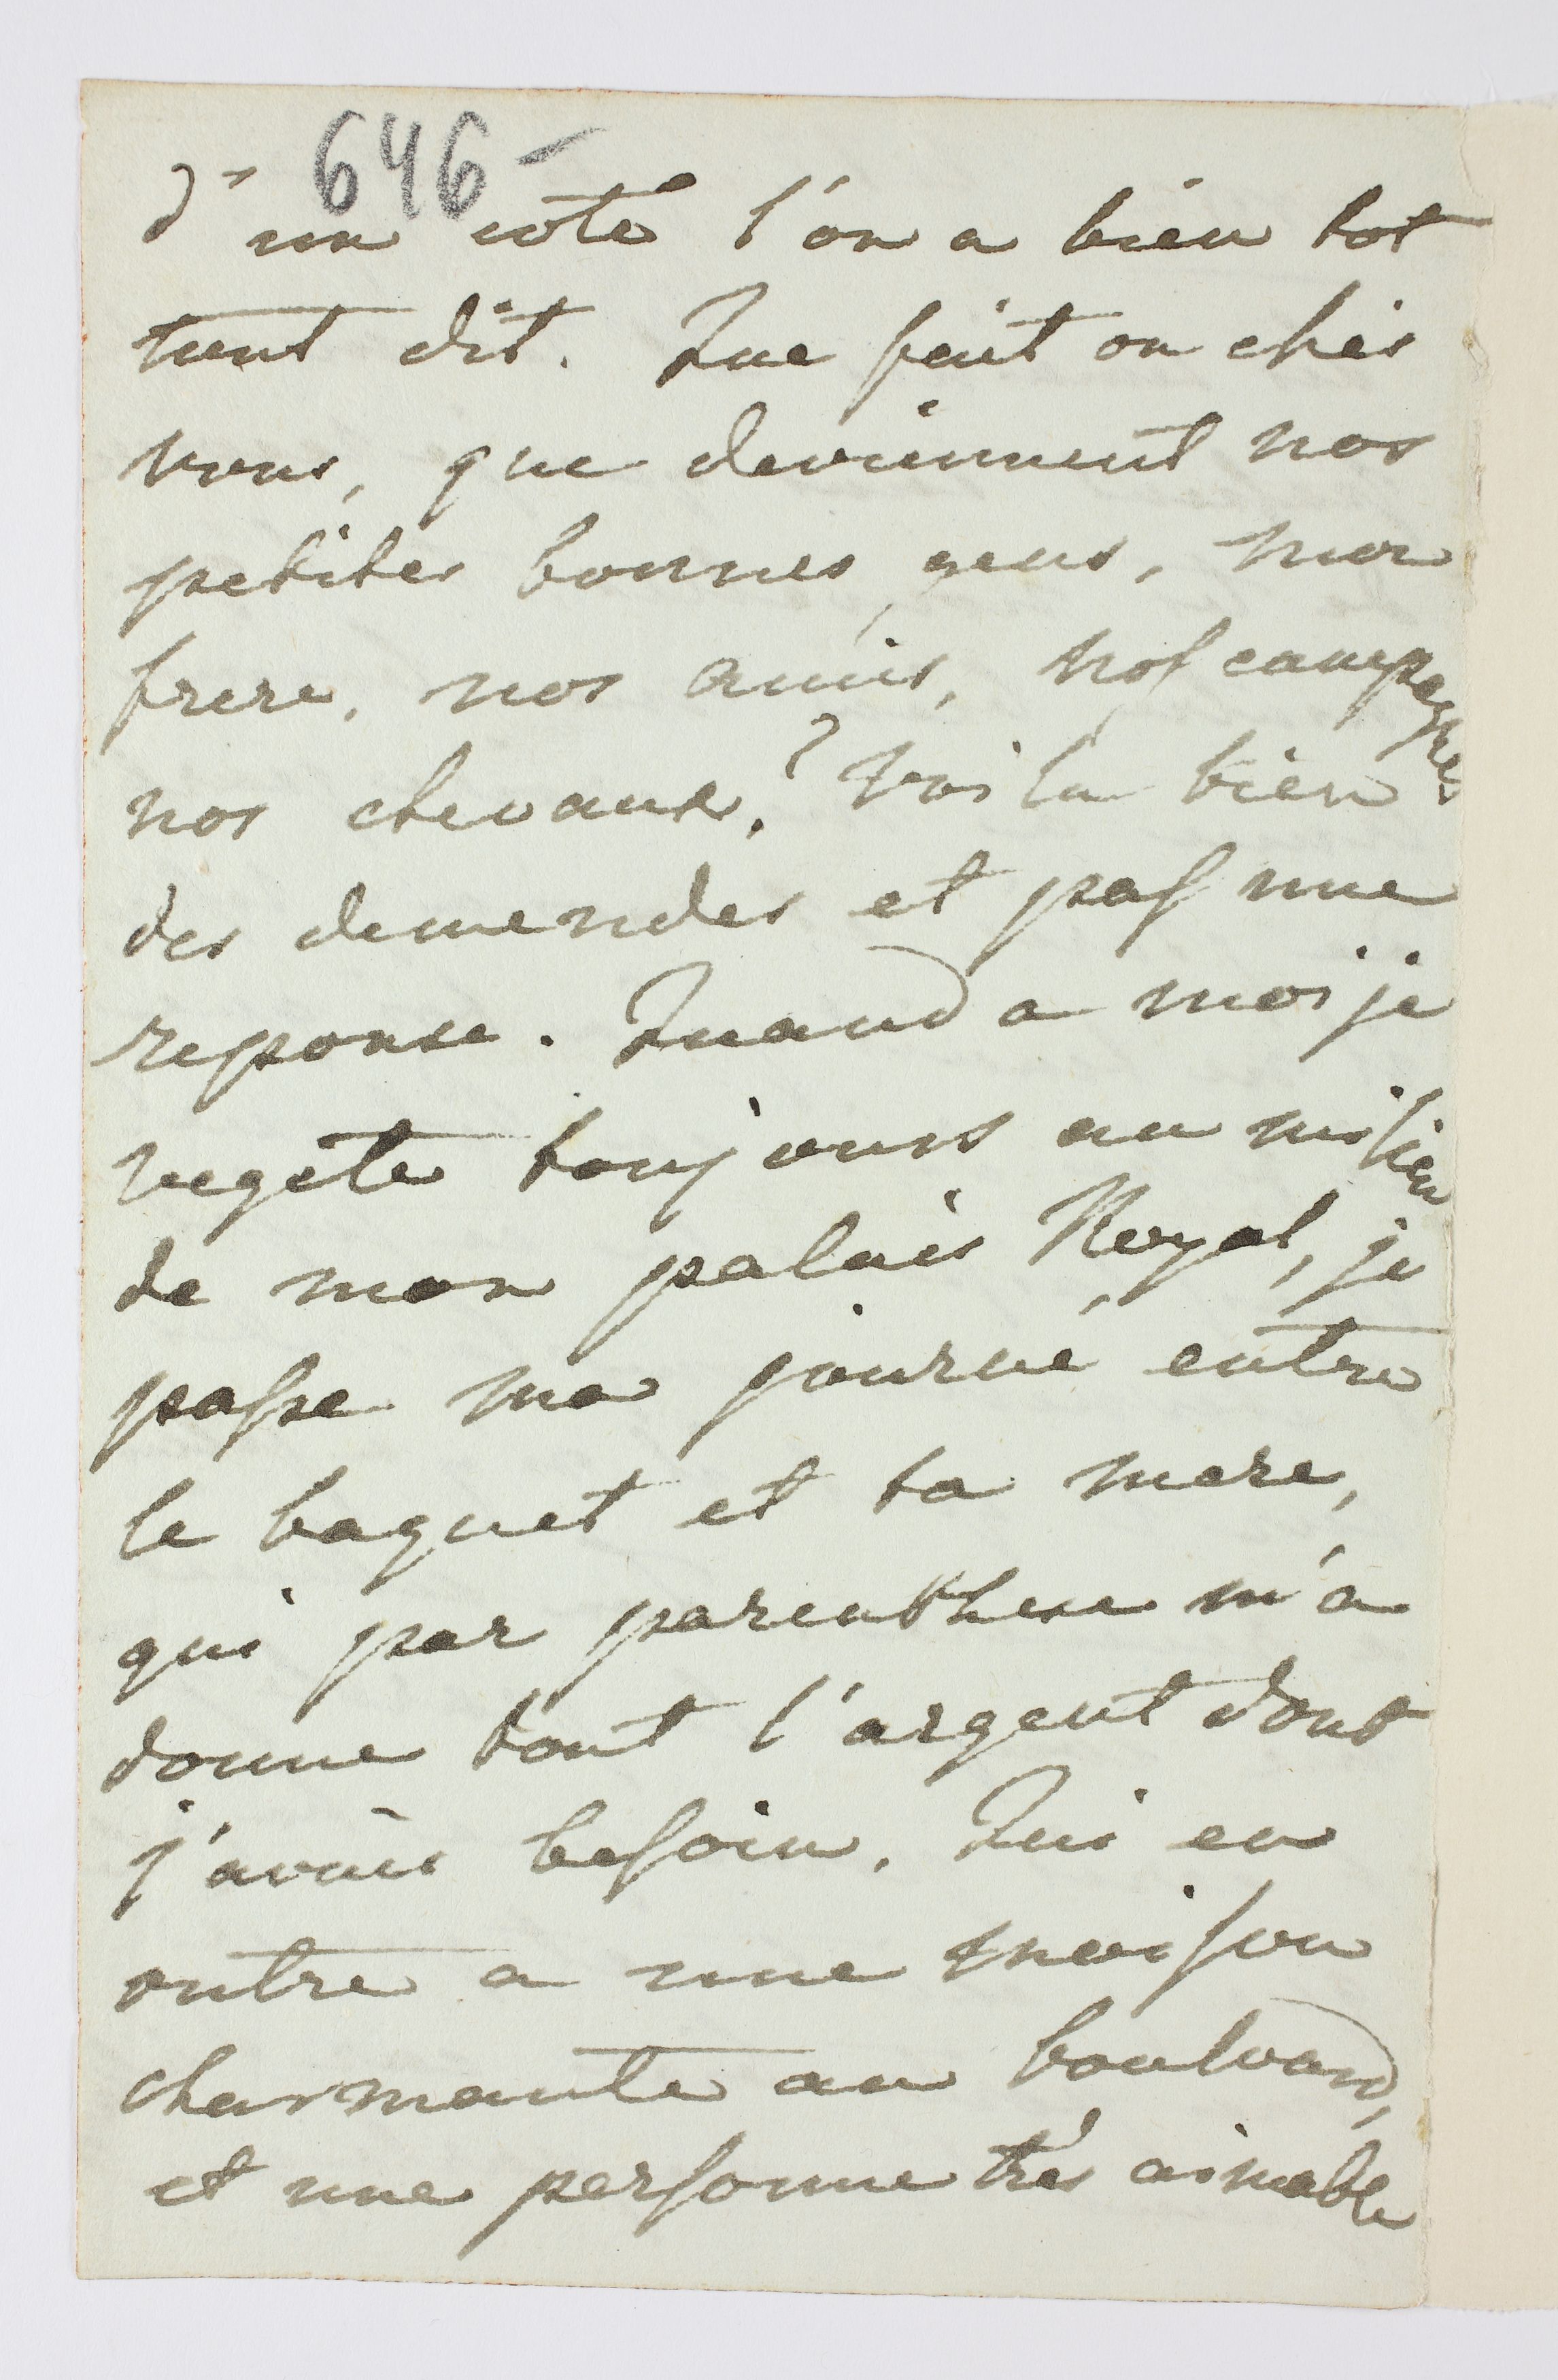 646 –
d'un coté l'on a bien tot
tout dit. Que fait on chés
vous, que deviennent nos
petites bonnes gens, mon
frere, nos amis, nos campagnes
nos chevaux,? Voila bien
des demendes et pas une
reponse. Quand a moi je
vegete toujours au milieu
de mon palais Royal, je
passe ma journé entre
le baquet et ta mere,
qui par parenthese m'a
donne tout l'argent dont
j'avais besoin. Qui en
outre a une maison
charmante au boulvard,
et une personne très aimable